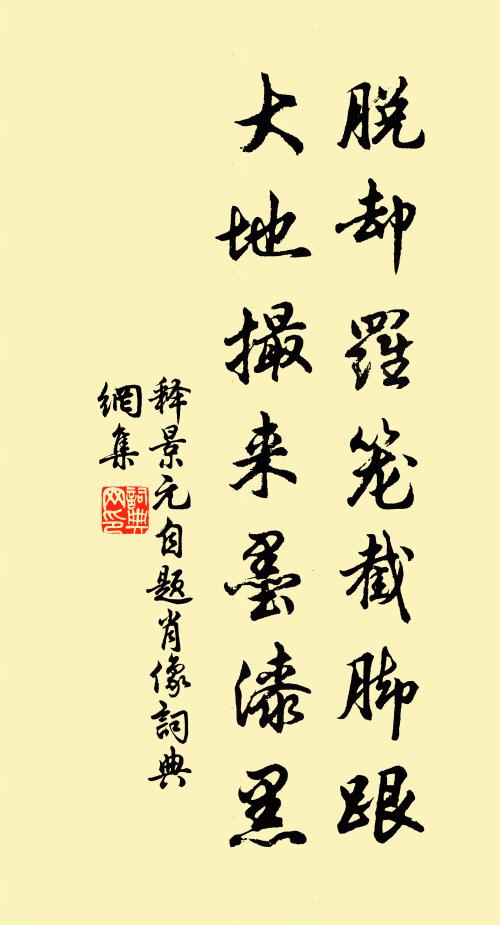 脱却羅笼截脚跟
大地撮来墨漆黑
释景元自题肖像詞典
網集
詞典
网印